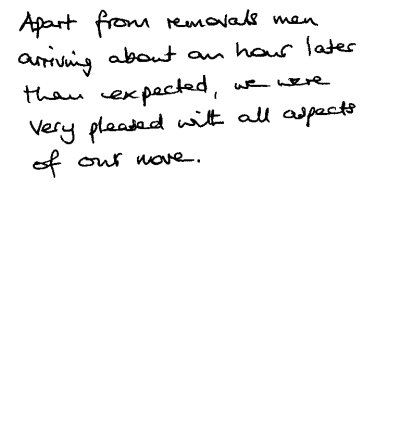 Apart from removals men
arriving about an hour later
than expected, we were
very pleased with all aspects
of our move.